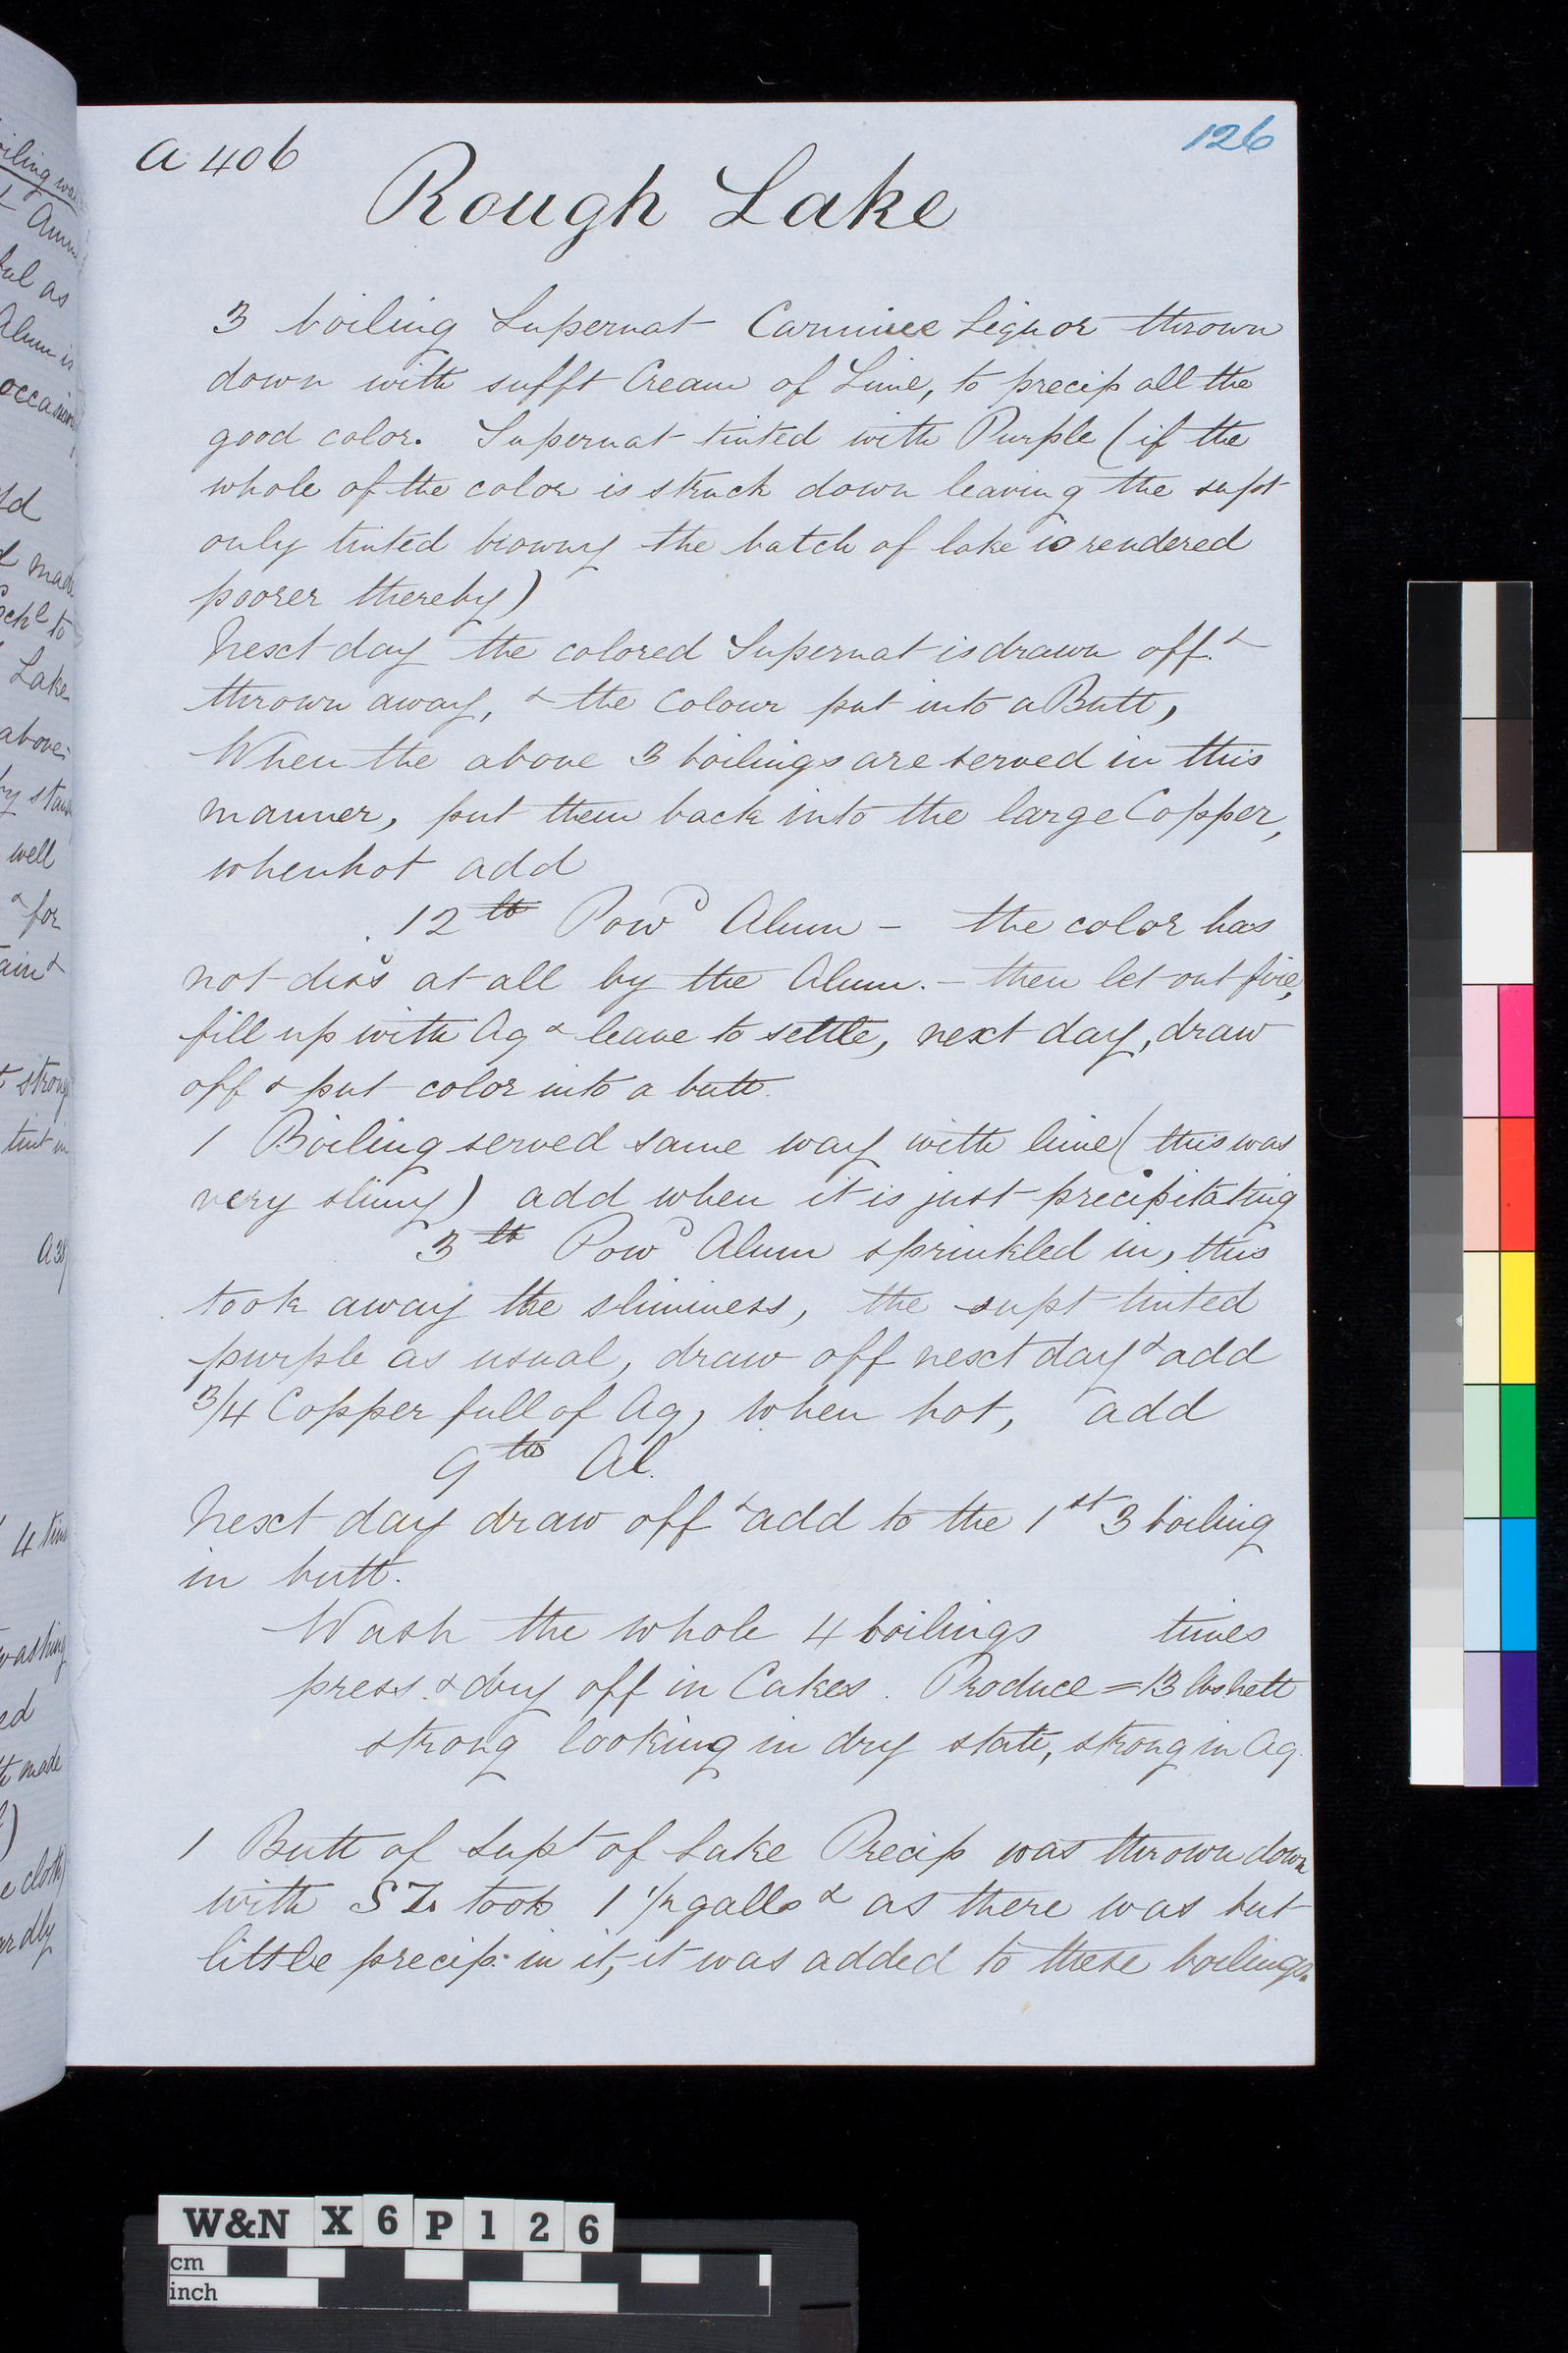 a 406
126
Rough Lake
3 boiling Supernat Carmine Liquor thrown
down with sufft Cream of Lime, to precip all the
good color. Supernat tinted with Purple (if the
whole of the color is struck down leaving the supt
only tinted browny the batch of lake is rendered
poorer thereby)
Next day the colored Supernat is drawn off. &
thrown away, & the Colour put into a Butt,
When the above 3 boilings are served in this
manner, put them back into the large Copper,
when hot add
12 lb Powd Alum - the color has
not diss at all by the Alum. - then let out fire,
fill up with Aq & leave to settle, next day, draw
off & put color into a butt.
1 Boiling served same way with lime (this was
very slimy) add when it is just precipitating
3 lb Powd Alum sprinkled in, this
took away the sliminess, the supt tinted
purple as usual, draw off next day & add
3/4 Copper full of Aq, when hot, add
9 lbs Al.
Next day draw off & add to the 1st 3 boiling
in butt.
Wash the whole 4 boilings times
press. & dry off in Cakes. Produce = 13 lbs nett
strong looking in dry state, strong in Aq.
1 Butt of Supt of Lake Precip was thrown down
with SZ. took 1 1/2 galls & as there was but
little precip. in it, it was added to these boilings.
W&N X 6 P 1 2 6
cm
inch